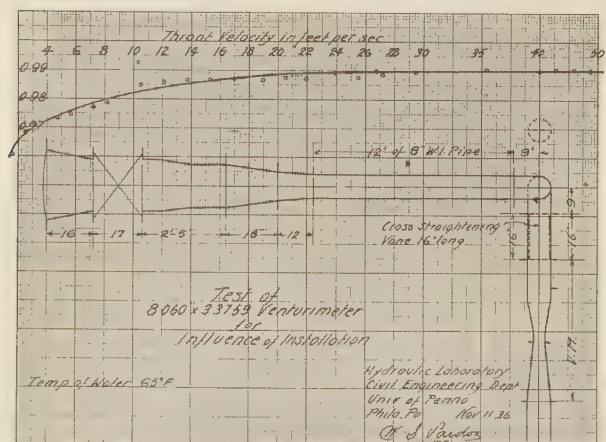 Throat Velocity in feet per sec
4 6 8 10 12 14 16 18 20 22 24 26 28 30 35 40 45 50
0.99
0.98
0.97
12' of 8" W.I. Pipe
9"
9"
16 17 2'-5" 18" 12
Cross Straightening
Vane 16" long
16"
16"
Test of
8.060 x 3.3759 Venturimeter
for
Influence of Installation
Temp of Water 65°F
Hydraulic Laboratory
Civil Engineering Dept
Univ of Penna
Phila. Pa Nov 11 36
W S Pardoe